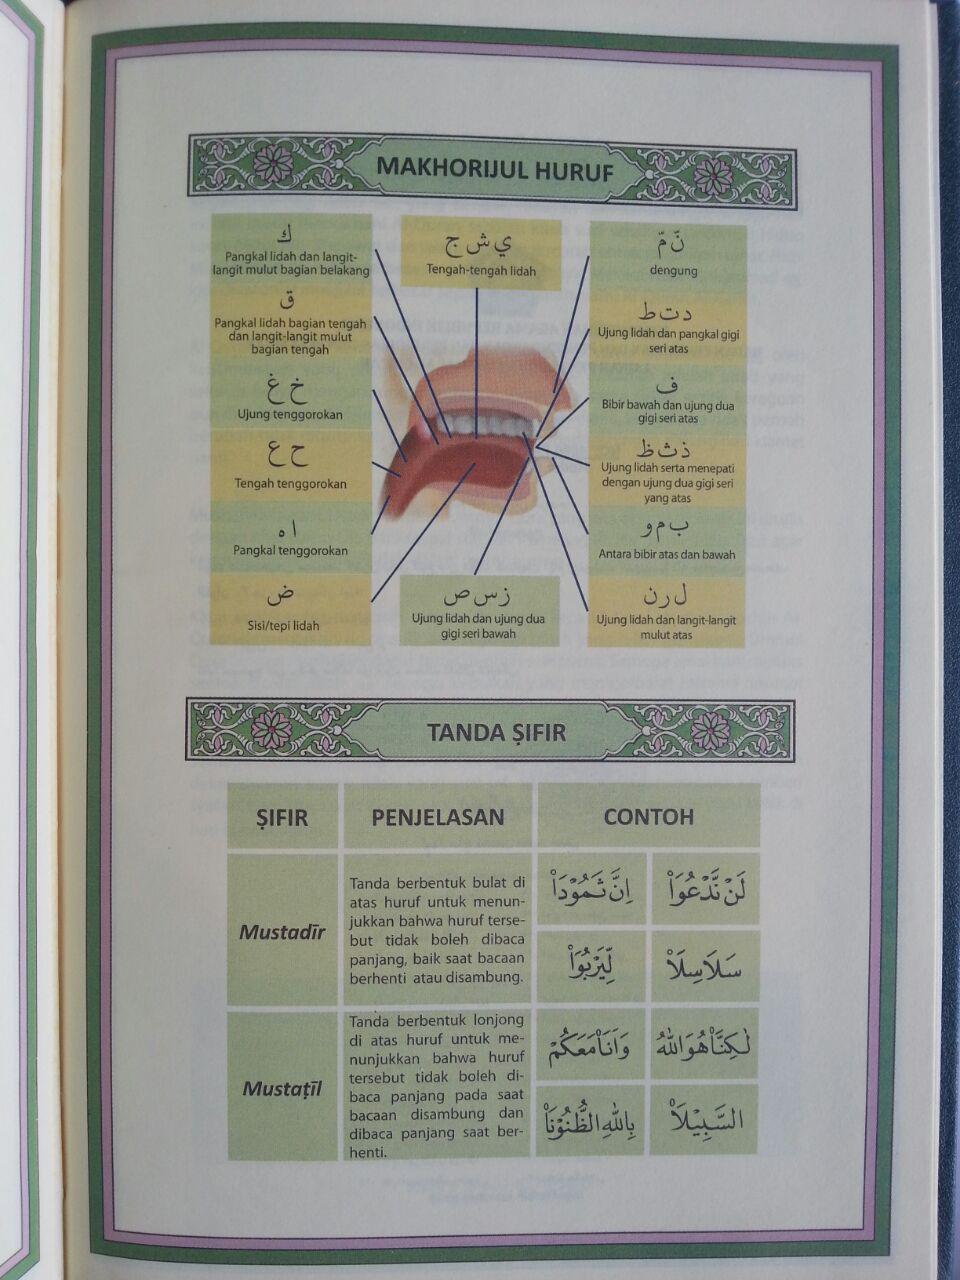 MAKHORIJUL HURUF
ك
Pangkal lidah dan langit-
langit mulut bagian belakang
ق
Pangkal lidah bagian tengah
dan langit-langit mulut
bagian tengah
خ غ
Ujung tenggorokan
ح ع
Tengah tenggorokan
ا ه
Pangkal tenggorokan
ض
Sisi/tepi lidah
ي ش ج
Tengah-tengah lidah
ز س ص
Ujung lidah dan ujung dua
gigi seri bawah
نّ مّ
dengung
د ت ط
Ujung lidah dan pangkal gigi
seri atas
ف
Bibir bawah dan ujung dua
gigi seri atas
ذ ث ظ
Ujung lidah serta menepati
dengan ujung dua gigi seri
yang atas
ب م و
Antara bibir atas dan bawah
ل ر ن
Ujung lidah dan langit-langit
mulut atas
TANDA ṢIFIR
ṢIFIR
PENJELASAN
CONTOH
Mustadīr
Tanda berbentuk bulat di
atas huruf untuk menun-
jukkan bahwa huruf terse-
but tidak boleh dibaca
panjang, baik saat bacaan
berhenti atau disambung.
لَنْ نَّدْعُوَا۟
اِنَّ ثَمُوْدَا۟
سَلَاسِلَا۟
لِّيَرْبُوَا۟
Mustaṭīl
Tanda berbentuk lonjong
di atas huruf untuk me-
nunjukkan bahwa huruf
tersebut tidak boleh di-
baca panjang pada saat
bacaan disambung dan
dibaca panjang saat ber-
henti.
لٰكِنَّا۠ هُوَ اللّٰهُ
وَاَنَا۠ مَعَكُمْ
السَّبِيْلَا۠
بِاللّٰهِ الظُّنُوْنَا۠